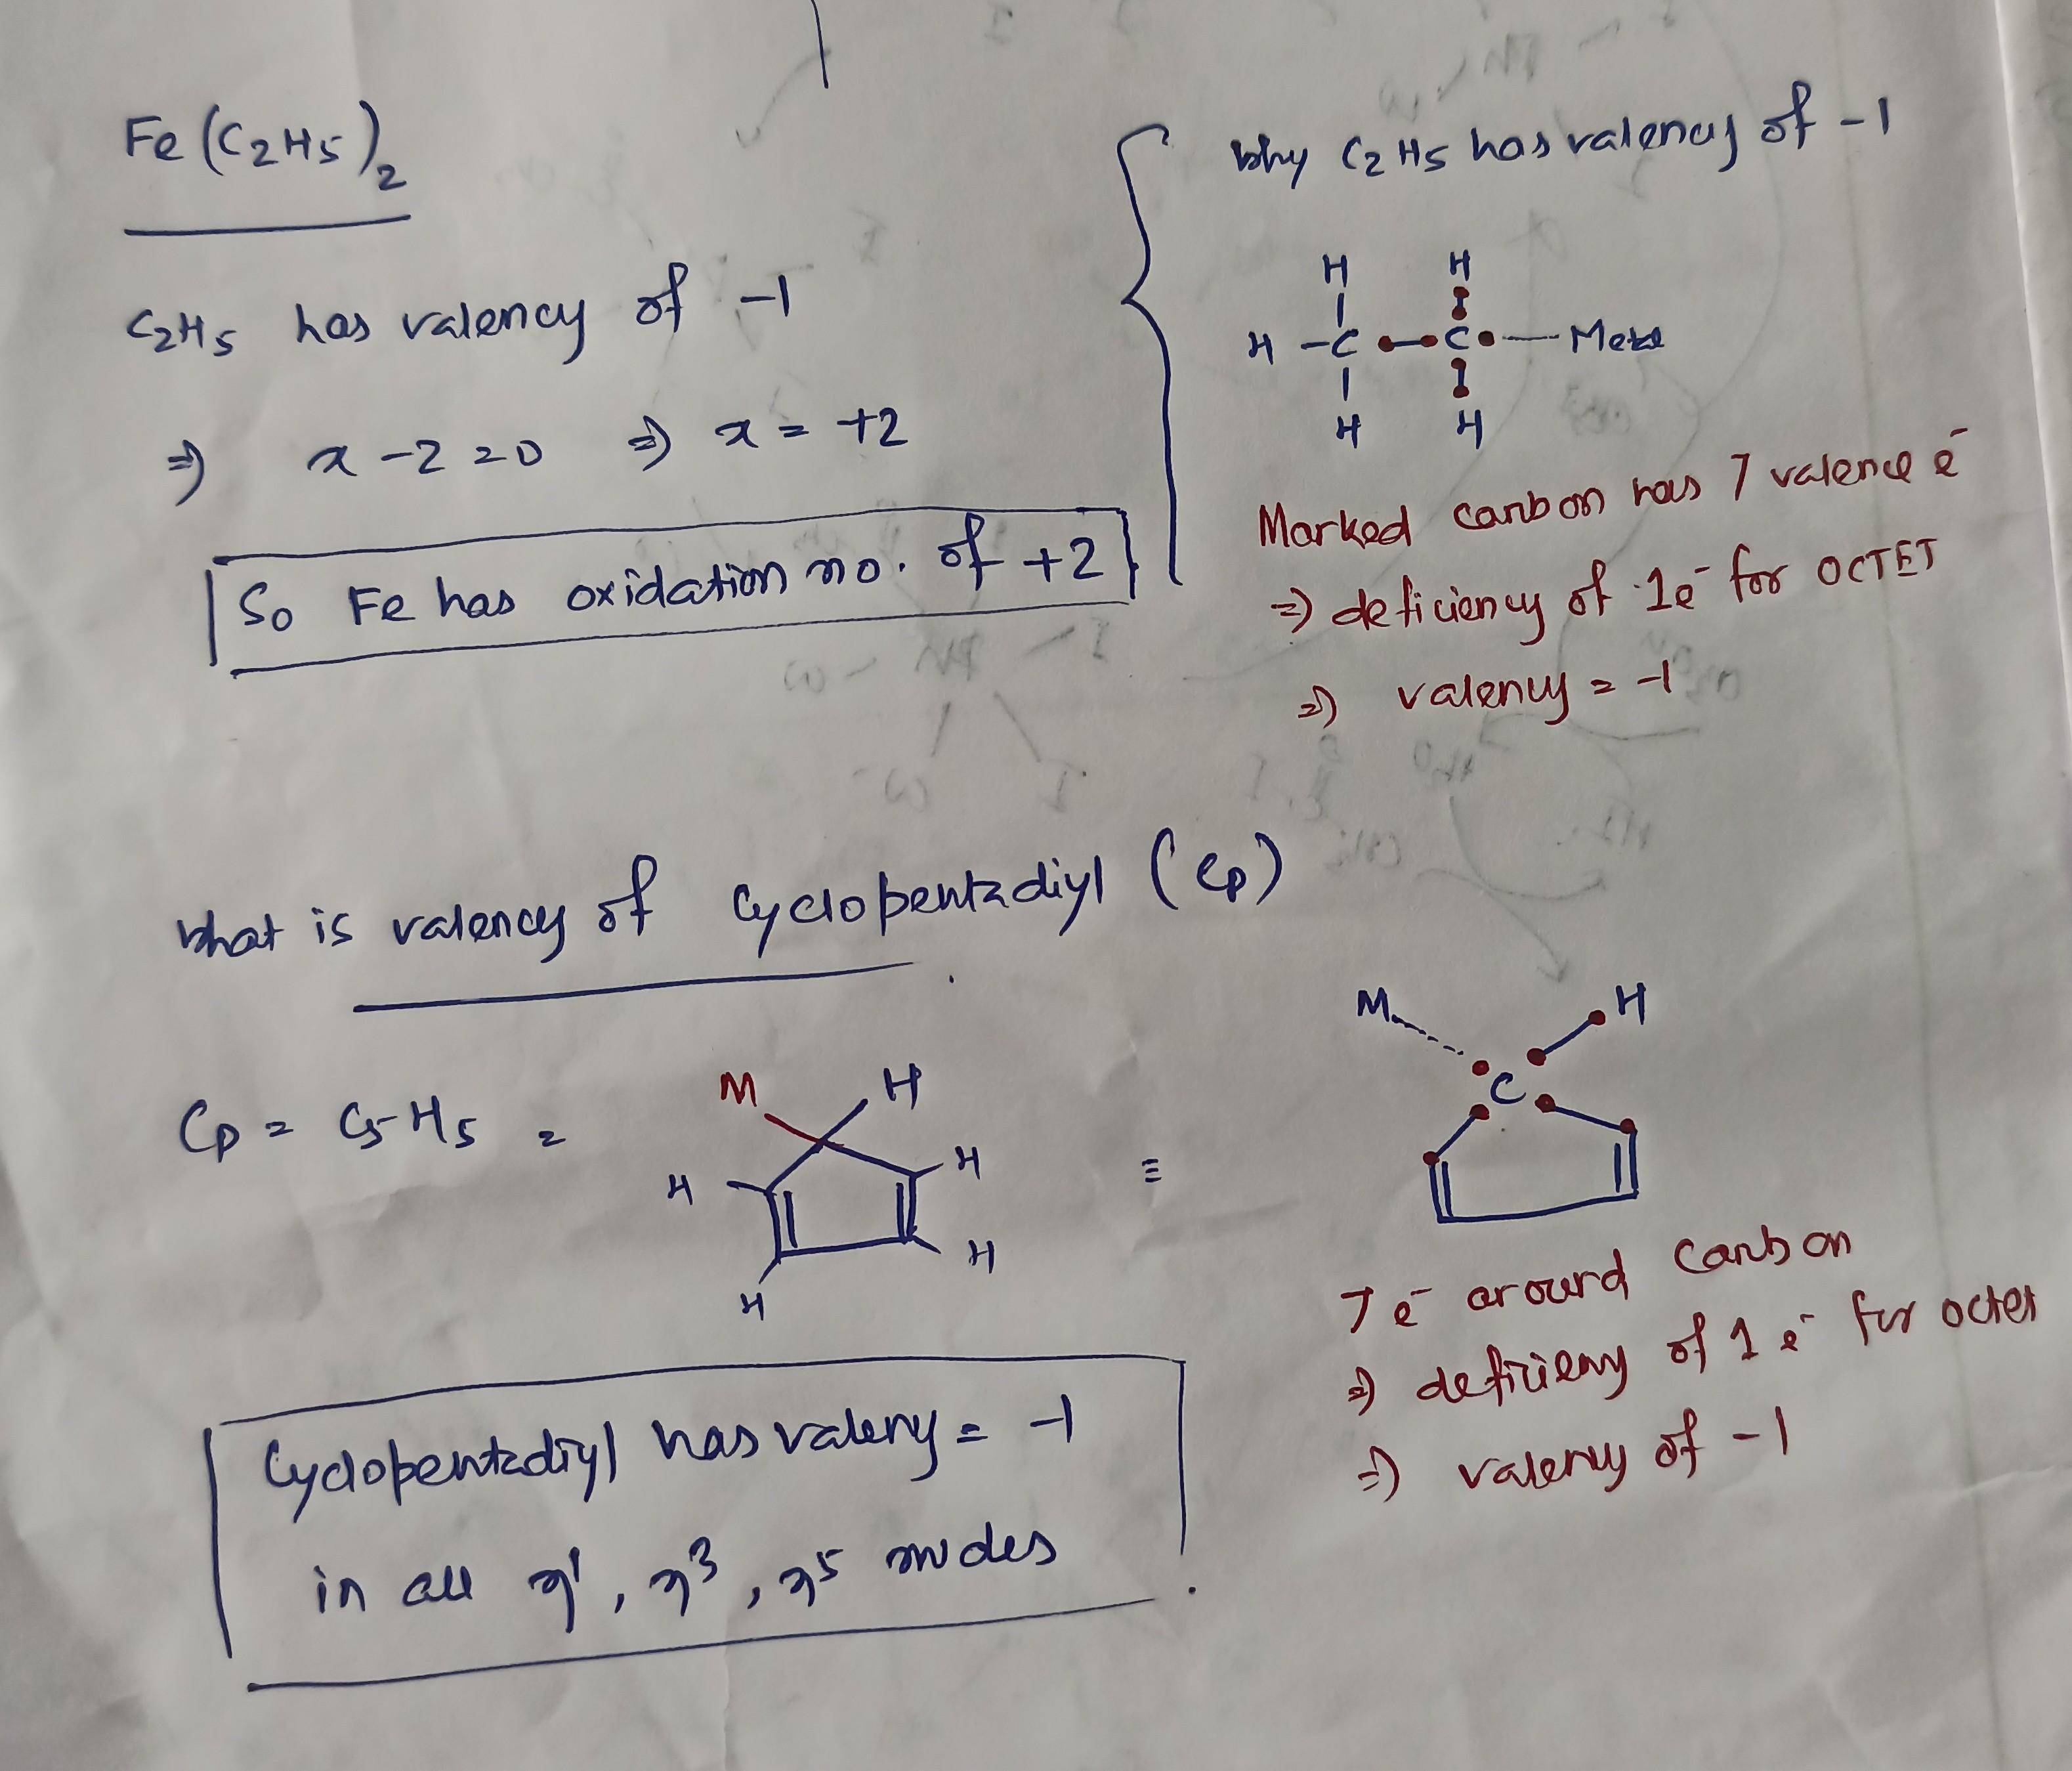 Fe (C2H5)2
C2H5 has valency of -1
⇒ x - 2 = 0 ⇒ x = +2
So Fe has oxidation no. of +2
Why C2H5 has valency of -1
H H
H - C - C - Metal
H H
Marked carbon has 7 valence e-
⇒ deficiency of 1e- for OCTET
⇒ valency = -1
What is valency of Cyclopentadiyl (Cp)
Cp = C5H5 =
M H
H H
H H
≡
M H
C
7 e- around Carbon
⇒ deficieny of 1 e- for octet
⇒ valeny of -1
Cyclopentadiyl has valeny = -1
in all η1, η3, η5 modes